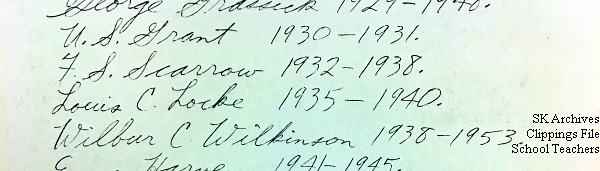 George Grassick 1929-1940.
U. S. Grant 1930-1931.
F. S. Scarrow 1932-1938.
Louis C. Locke 1935-1940.
Wilbur C. Wilkinson 1938-1953.
1941-1945.
SK Archives
Clippings File
School Teachers